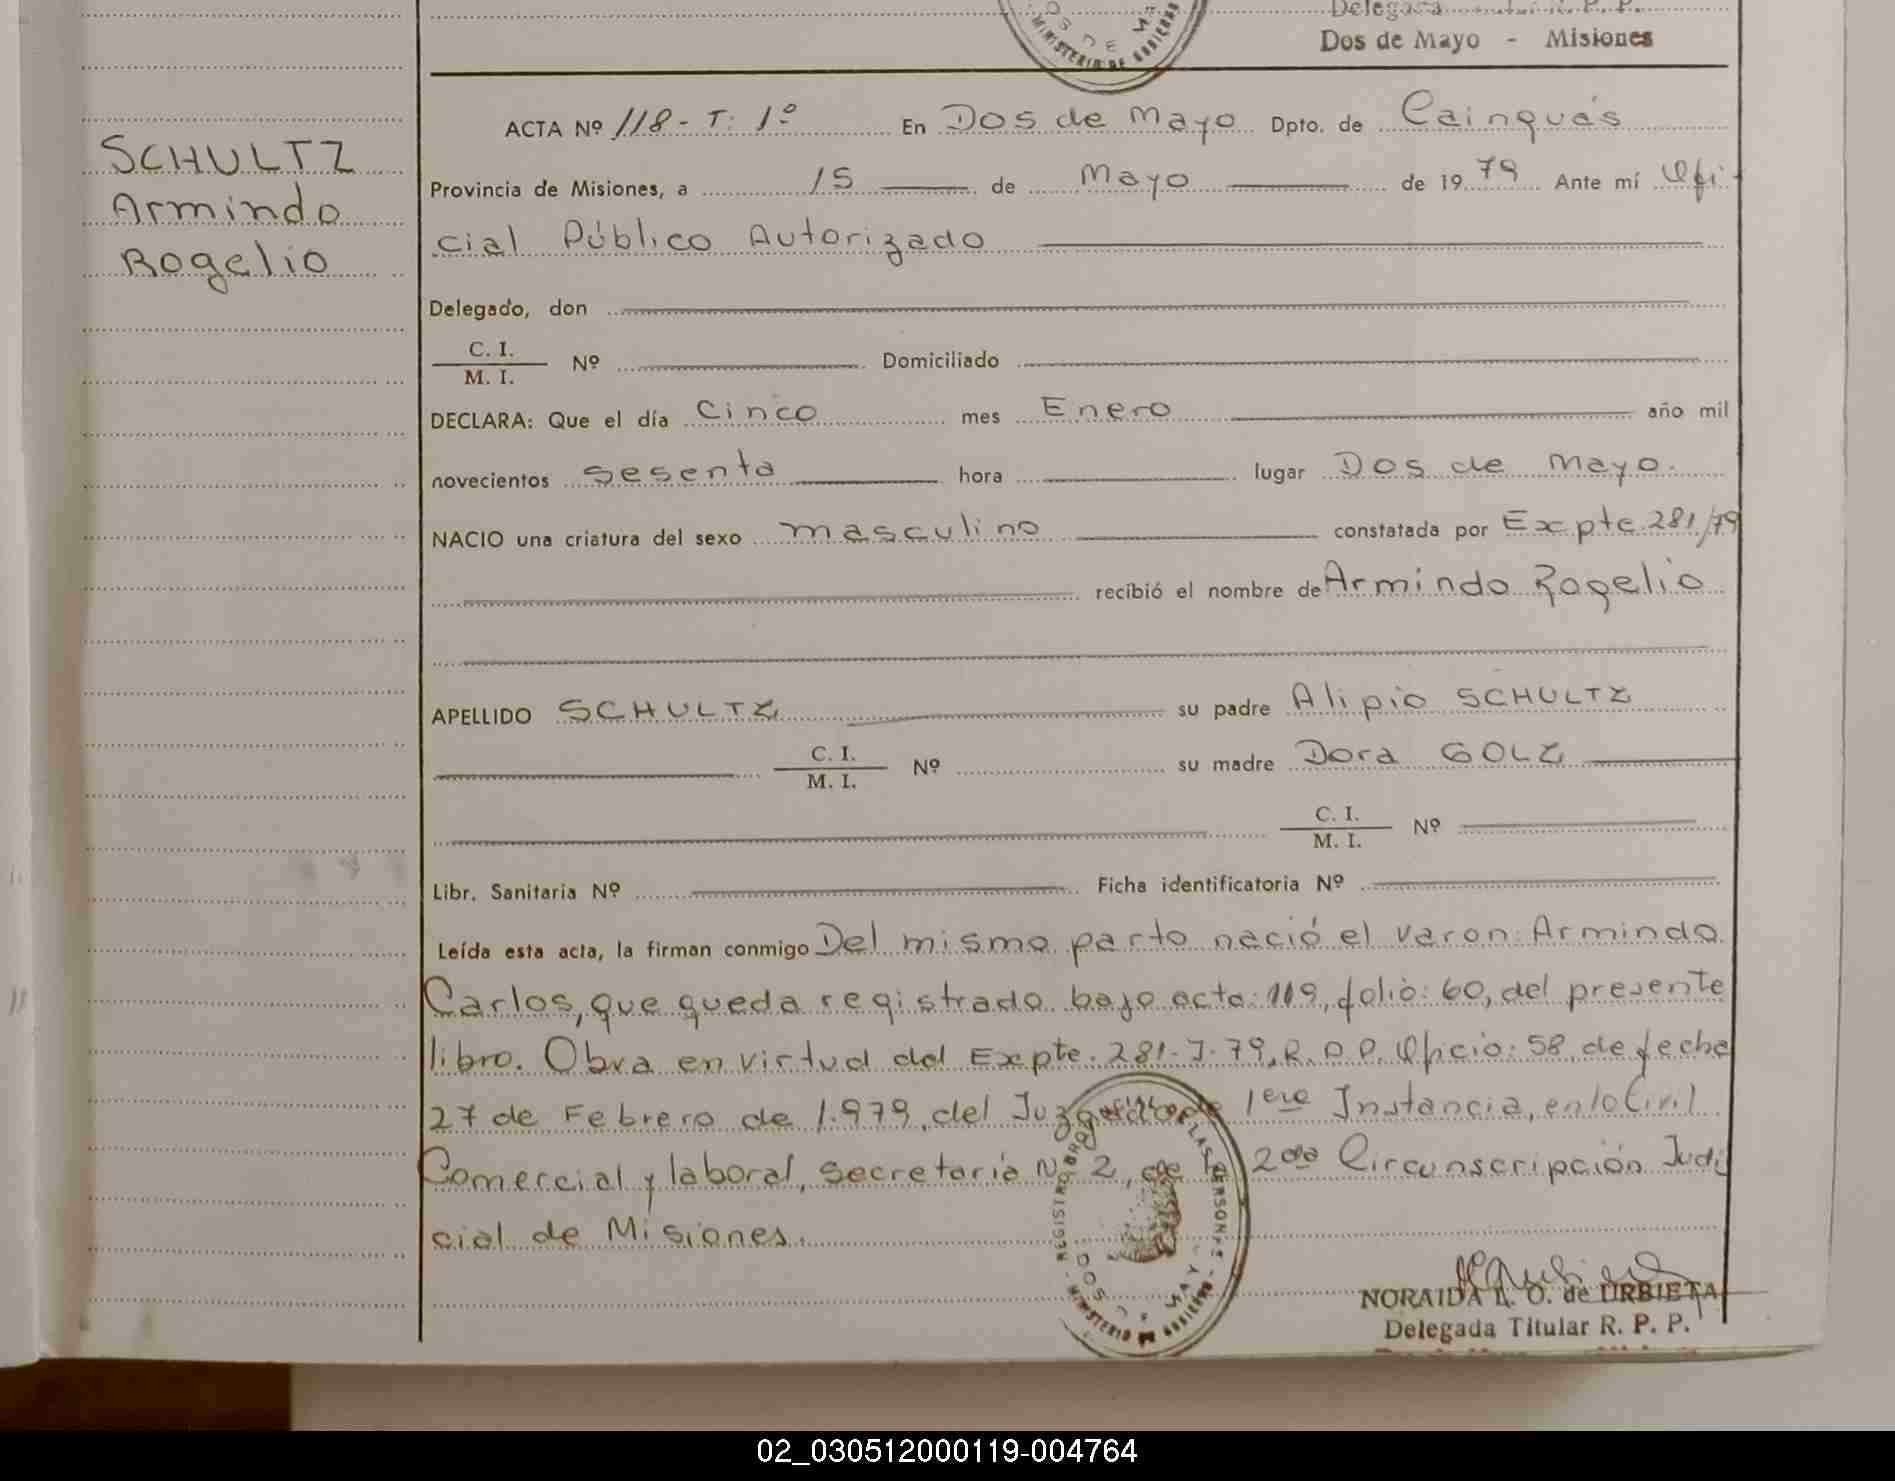 Delegada Titular R. P. P.
Dos de Mayo - Misiones
DOS DE MA
MINISTERIO DE GOBIERNO
SCHULTZ
Armindo
Rogelio
ACTA Nº 118 - T: 1º En Dos de Mayo Dpto. de Cainguás
Provincia de Misiones, a 15 de Mayo de 1979 Ante mí Ofi-
cial Público Autorizado
Delegado, don
C. I.
M. I. Nº Domiciliado
DECLARA: Que el día cinco mes Enero año mil
novecientos sesenta hora lugar Dos de Mayo.
NACIO una criatura del sexo masculino constatada por Expte. 281/79
recibió el nombre de Armindo Rogelio
APELLIDO SCHULTZ su padre Alipio SCHULTZ
C. I.
M. I. Nº su madre Dora GOLZ
C. I.
M. I. Nº
Libr. Sanitaria Nº Ficha identificatoria Nº
Leída esta acta, la firman conmigo Del mismo parto nació el varon: Armindo
Carlos, que queda registrado bajo acta: 119, folio: 60, del presente
libro. Obra en virtud del Expte. 281-J-79, R.P.P. Oficio: 58, de fecha
27 de Febrero de 1.979, del Juzgado de 1era Instancia, en lo Civil
Comercial y laboral, Secretaria Nº 2, de la 2da Circunscripción Judi
cial de Misiones.
NORAIDA L. O. de URBIETA
Delegada Titular R. P. P.
02_030512000119-004764